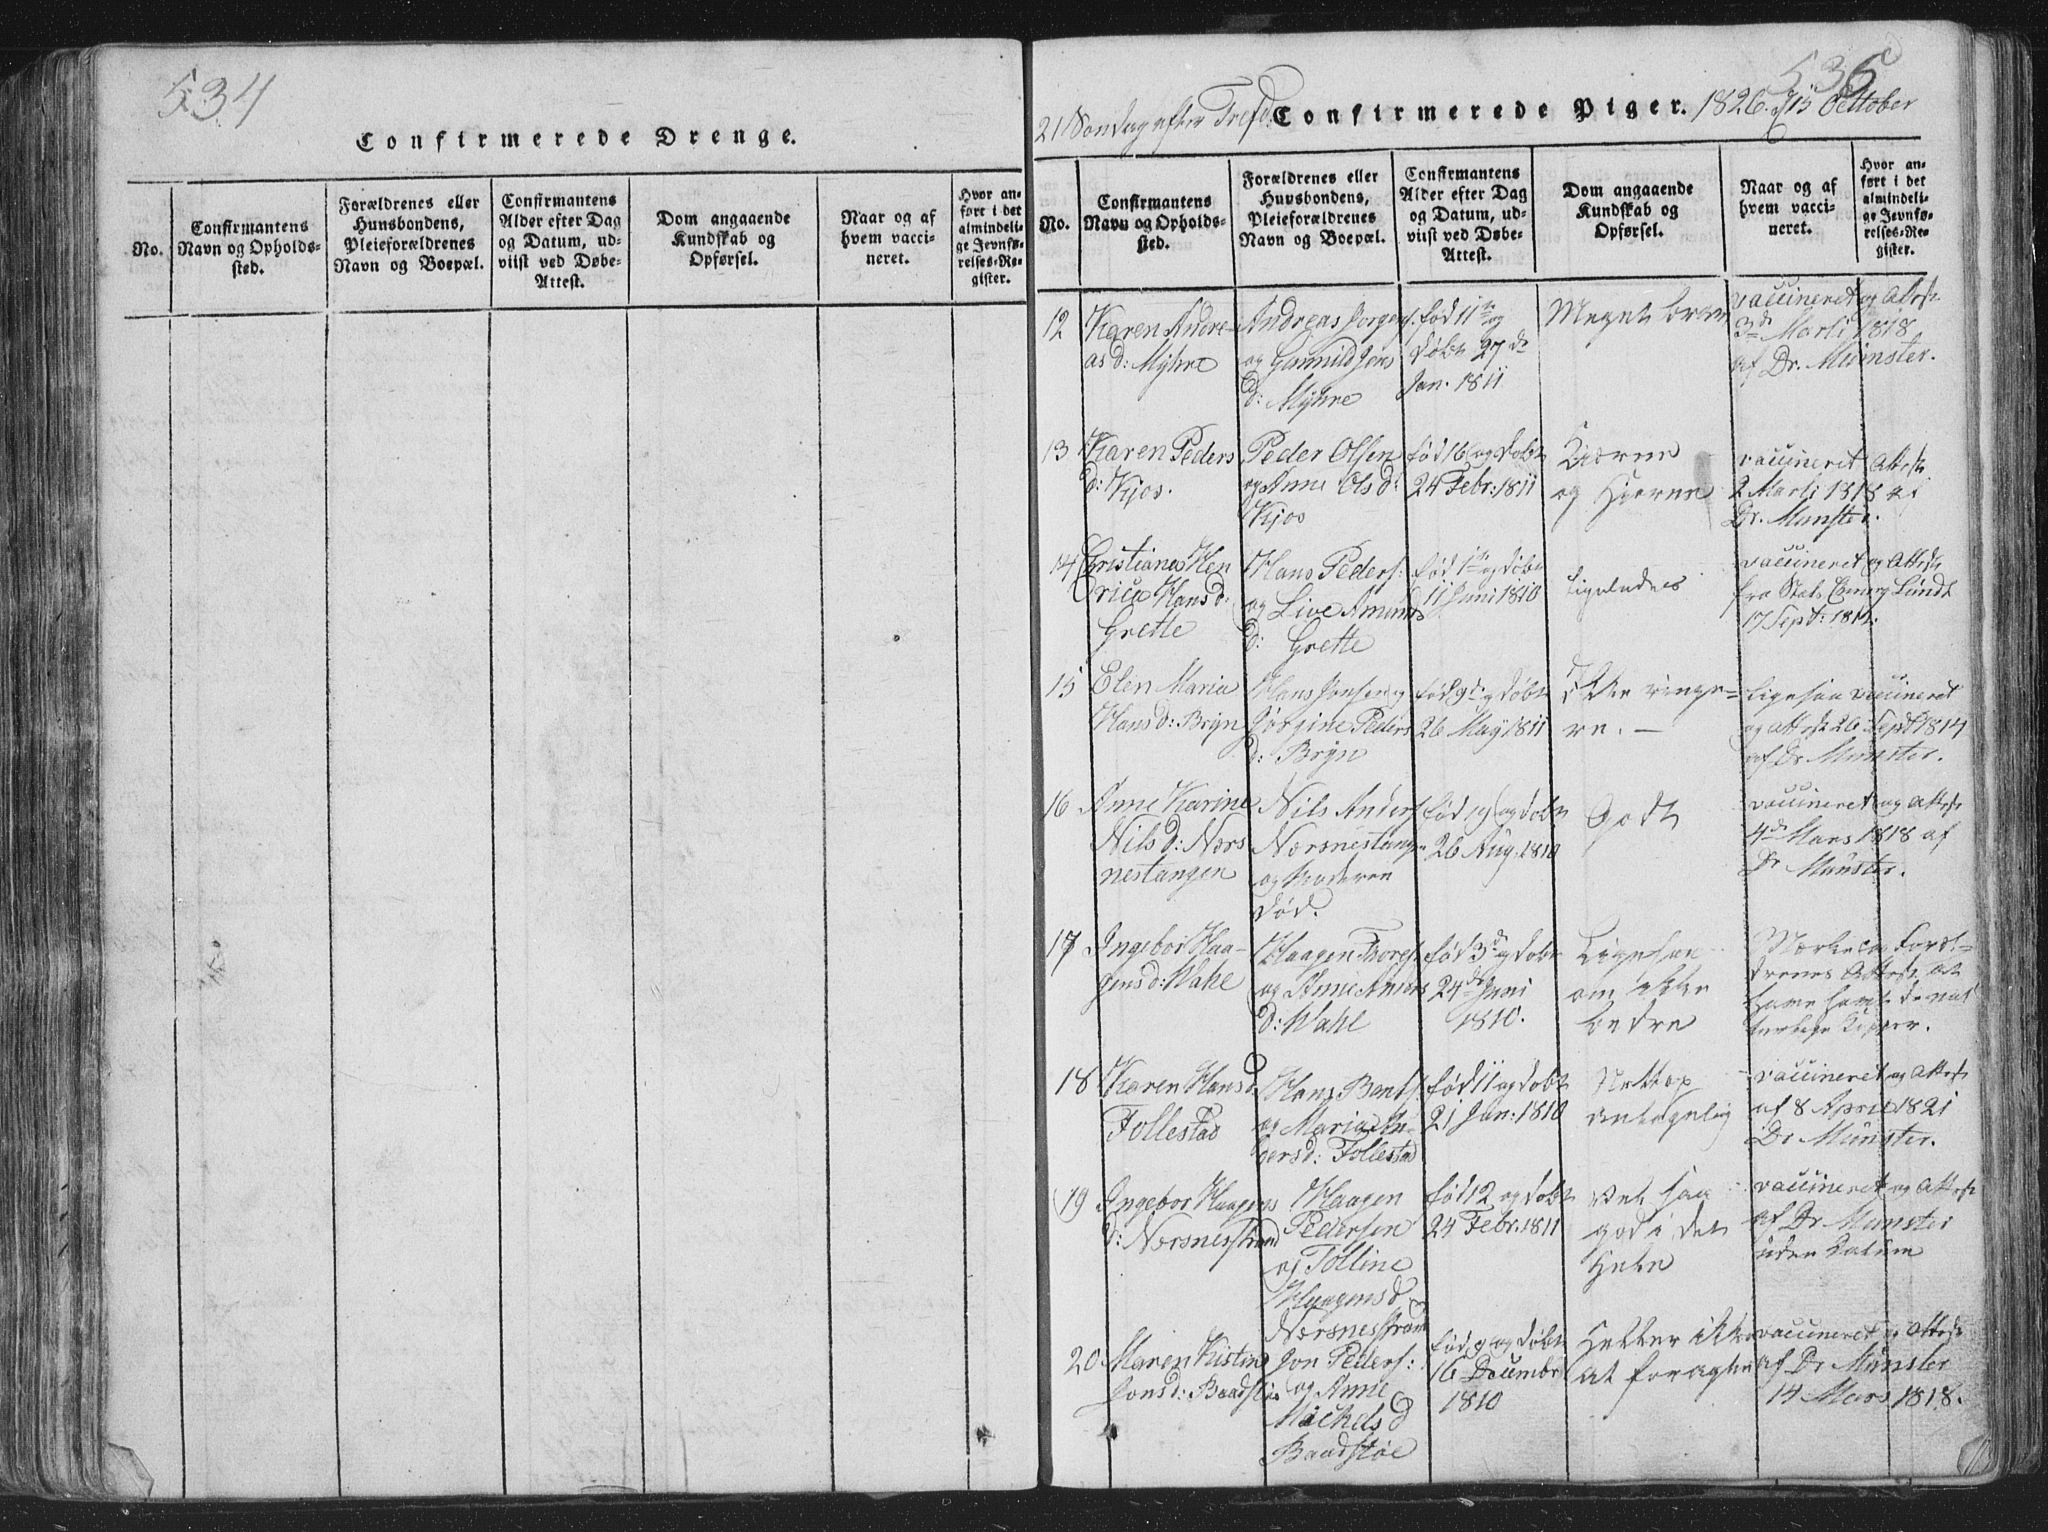 534
Confirmerede Drenge.
No.
Confirmantens
Navn og Opholds-
sted.
Forældrenes eller
Huusbondens,
Pleieforældrenes
Navn og Boepæl.
Confirmantens
Alder efter Dag
og Datum, ud-
viist ved Døbe-
Attest.
Dom angaaende
Kundskab og
Opførsel.
Naar og af
hvem vacci-
neret.
Hvor an-
ført i det
almindeli-
ge Jevnfø-
relses-Re-
gister.
535
21 Søndag efter Trefd. Confirmerede Piger. 1826. 15 October
No.
Confirmantens
Navn og Opholds-
sted.
Forældrenes eller
Huusbondens,
Pleieforældrenes
Navn og Boepæl.
Confirmantens
Alder efter Dag
og Datum, ud-
viist ved Døbe-
Attest.
Dom angaaende
Kundskab og
Opførsel.
Naar og af
hvem vacci-
neret.
Hvor an-
ført i det
almindeli-
ge Jevnfø-
relses-Re-
gister.
12
Karen Andre-
as d: Myhre
Andreas Jorgens.
og Gunnild Jens
d: Myhre
født 11te og
døbt 27de
Jan. 1811
Meget brav
vaccineret og Attest
3de Marti 1818
af Dr. Münster.
13
Karen Peders
d: Kjos.
Peder Olsen
og Anne Ols d:
Kjos
født 16 og døbt
24 Febr: 1811
Kierne
og Hierne
vaccineret Attest
2 Marti 1818 af
Dr. Munster.
14
Christiana Hen
rica Hans d:
Grette
Hans Peders:
og Live Amunds
d: Grette
født 1te og døbt
11 Juni 1810
Ligeledes
vaccineret og Attest
fra Lundt
17 Sept:
15
Elen Maria
Hans d: Bryn
Hans Jonsen og
Jørgine Peders
d: Bryn
født 9d: og døbt
26 May 1811
ikke ringe=
re. —
Ligesaa vaccineret
og Attest 26 Sept 1814
af Dr Münster.
16
Anne Karine
Nils d: Nærs
nestangen
Nils Anders.
Nærsnestang.
og Moderen
død.
født 19 og døbt
26 Aug. 1810
Godt
vaccineret og Attest
4de Mars 1818 af
Dr Münster.
17
Ingebor Haa-
gens d: Wahl
Haagen Thores.
og Anne Anders
d: Wahl
født 3d og døbt
24de Juni
1810.
Ligesaa
om ikke
bedre
Mærke og Foræl-
drenes Attest at
have havt de nat
turlige Kopper.
18
Karen Hans d
Follestad
Hans Bents.
og Maria An-
ders d: Follestad
født 11 og døbt
21 Jan: 1810
Nettop
antagelig
vaccineret og Attest
af 8 April 1821
Dr Münster.
19
Ingebor Haagens
d: Nærsnesstrand
Haagen
Pedersen
og Tolline
Haagens d
Nærsnesstrand
født 12 og døbt
24 Febr. 1811
Vel saa
god i det
Hele
vaccineret og Attest
af Dr Munster
uden Datum
20
Maren Kistine
Jons d: Baadstøe
Jon Peders:
og Anne
Michels d
Baadstøe
født 9 og døbt
16 Decembr
1810
Heller ikke
at foragte
vaccineret og Attest
af Dr Münster
14 Mars 1818.